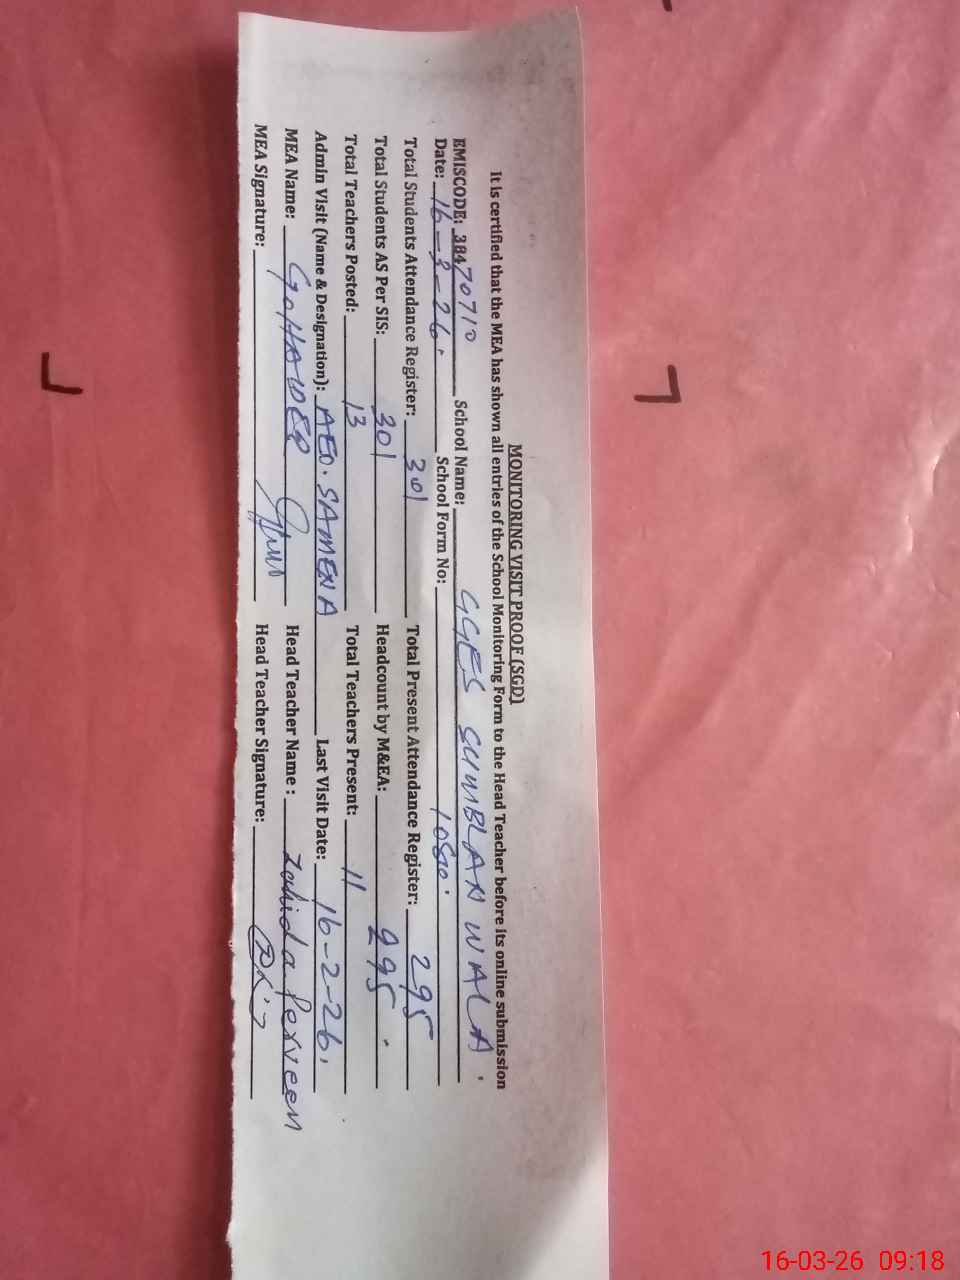 MONITORING VISIT PROOF (SGD)
It is certified that the MEA has shown all entries of the School Monitoring Form to the Head Teacher before its online submission
EMISCODE: 38470710 School Name: GGES SUMBLANWALA.
Date: 16-3-26. School Form No: 
Total Students Attendance Register: 301 Total Present Attendance Register: 295
Total Students AS Per SIS: 301 Headcount by M&EA: 295
Total Teachers Posted: 13 Total Teachers Present: 11
Admin Visit (Name & Designation): AEO. SAMENA Last Visit Date: 16-2-26.
MEA Name: Head Teacher Name : Zahida Perveen
MEA Signature: Head Teacher Signature:
16-03-26 09:18